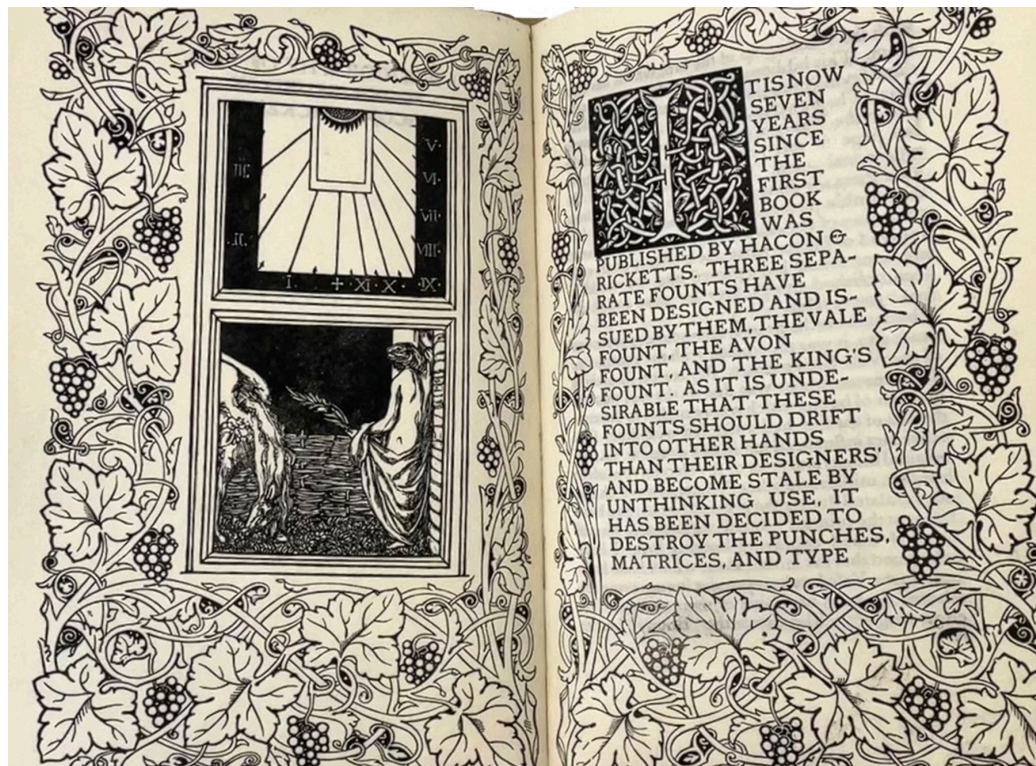 ·V·
III
·VI·
·VII·
·II·
VIII·
·I· + ·XI· X· ·IX·
IT IS NOW
SEVEN
YEARS
SINCE
THE
FIRST
BOOK
WAS
PUBLISHED BY HACON &
RICKETTS. THREE SEPA-
RATE FOUNTS HAVE
BEEN DESIGNED AND IS-
SUED BY THEM, THE VALE
FOUNT, THE AVON
FOUNT, AND THE KING'S
FOUNT. AS IT IS UNDE-
SIRABLE THAT THESE
FOUNTS SHOULD DRIFT
INTO OTHER HANDS
THAN THEIR DESIGNERS'
AND BECOME STALE BY
UNTHINKING USE, IT
HAS BEEN DECIDED TO
DESTROY THE PUNCHES,
MATRICES, AND TYPE